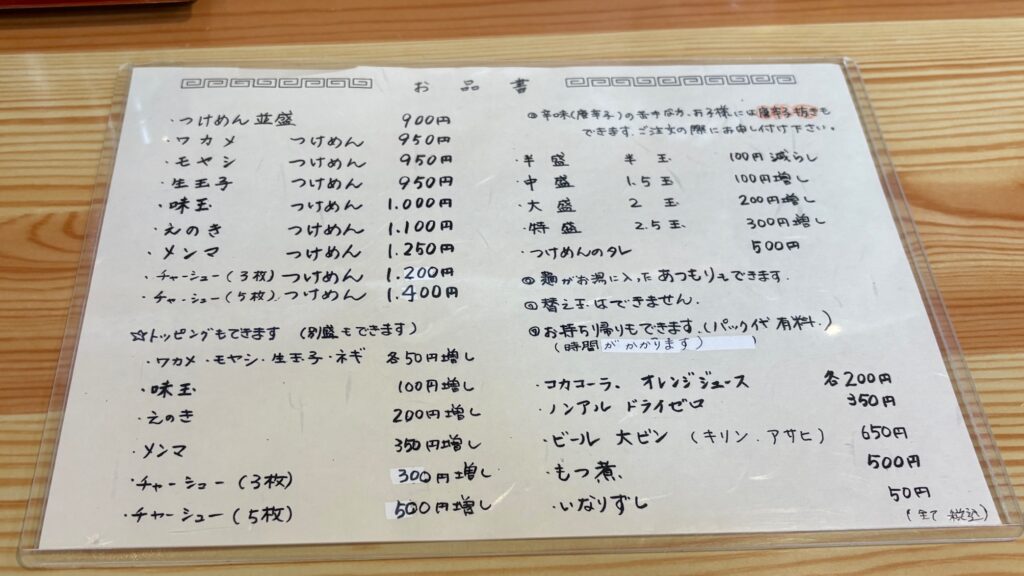 お品書
・つけめん 並盛 900円
・ワカメ つけめん 950円
・モヤシ つけめん 950円
・生玉子 つけめん 950円
・味玉 つけめん 1.000円
・えのき つけめん 1.100円
・メンマ つけめん 1.250円
・チャーシュー(3枚) つけめん 1.200円
・チャーシュー(5枚) つけめん 1.400円
☆トッピングもできます (別盛もできます)
・ワカメ・モヤシ・生玉子・ネギ 各50円増し
・味玉 100円増し
・えのき 200円増し
・メンマ 350円増し
・チャーシュー(3枚) 300円増し
・チャーシュー(5枚) 500円増し
◎辛味(唐辛子)の苦手な方、お子様には唐辛子抜きも
できます。ご注文の際にお申し付け下さい。
・半盛 半玉 100円減らし
・中盛 1.5玉 100円増し
・大盛 2玉 200円増し
・特盛 2.5玉 300円増し
・つけめんのタレ 500円
◎麺がお湯に入ったあつもりもできます.
◎替え玉はできません.
◎お持ち帰りもできます.(パック代有料.)
(時間がかかります)
・コカコーラ、オレンジジュース 各200円
・ノンアル ドライゼロ 350円
・ビール 大ビン (キリン.アサヒ) 650円
・もつ煮 500円
・いなりずし 50円
(全て税込)